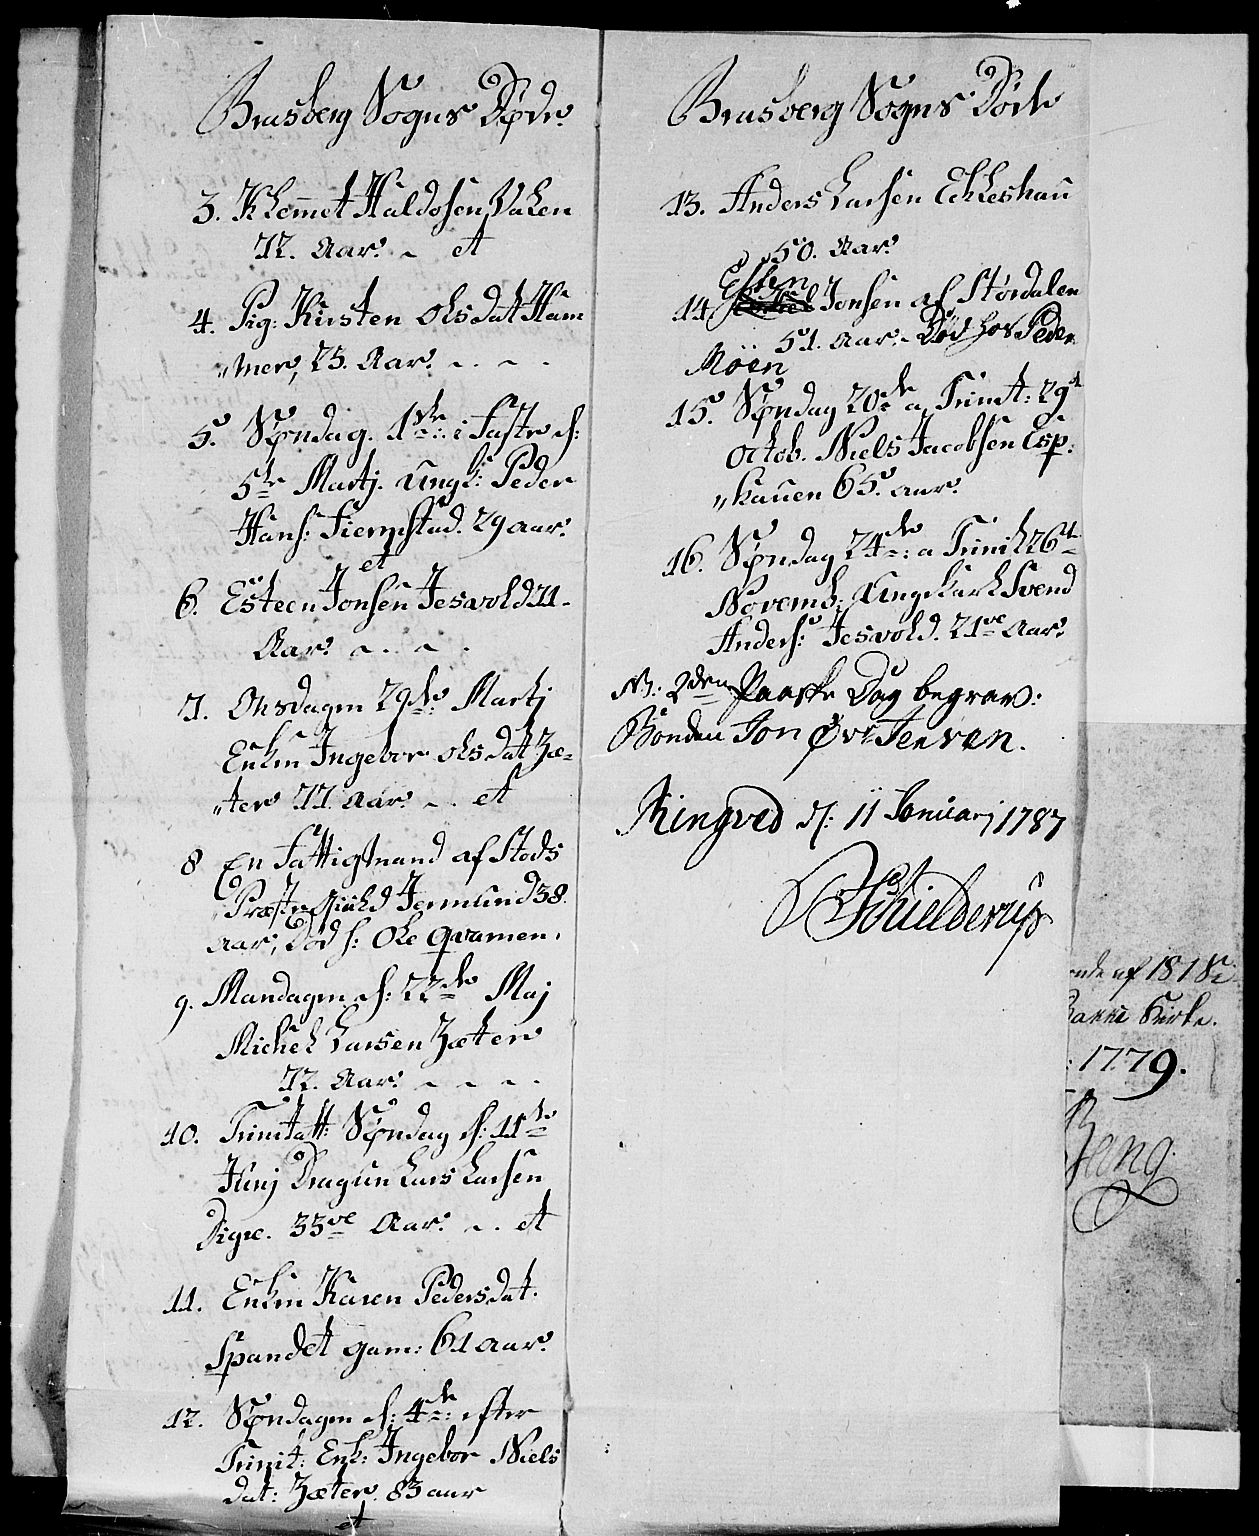 Brusberg Sogns Døde
3. Klemet Haldosen Vaken
72. Aar. et
4. Pig: Kirsten Olsdat Ham
"mer, 23. Aar.
5. Søndag. 1ste: i Faste d:
5te Martj. Ungk: Peder
Hans: Fiermstad. 29 aar.
et
6. Esteen Jonsen Jesvold 71.
Aar.
7. Onsdagen 29de: Martj
Enken Ingebor Olsdat Zæ-
"ter 77 Aar. et
8 En Fattig Mand af Stods
Præstegield Jermund 38.
Aar, Død h: Ole Qvamen.
9. Mandagen d: 22de Maj
Michel Larsen Zæter
72. Aar.
10. Trinitat: Søndag d: 11te
Junj Dragun Lars Larsen
Digre. 33ve Aar. et
11. Enken Karen Pedersdat.
Spandet gam: 61 aar.
12. Søndagen d: 4de: efter
Trinit: Enk: Ingebor Niels
dat: Zæter. 83 aar
et
Brusberg Sogns Døde
13. Anders Larsen Ekleshau
50. Aar.
Esten
14. Jonsen af Størdalen
51. Aar. Død hos Peder
Möen
15. Søndag 20de a Trinit: 29t
Octob. Niels Jacobsen Esp:
"hauen 65. aar.
16. Søndag 24de: a Trinit 26t
Novemb: Ungekarl Svend
Anders: Jesvold. 21ve Aar.
NB: 2den Paaske Dag begrav:
Bonden Jon Øvr Jerven.
Ringved d: 11 Januarj 1787
Schielderup
ende af 1818
Bakke Kirke.
1779.
Bang